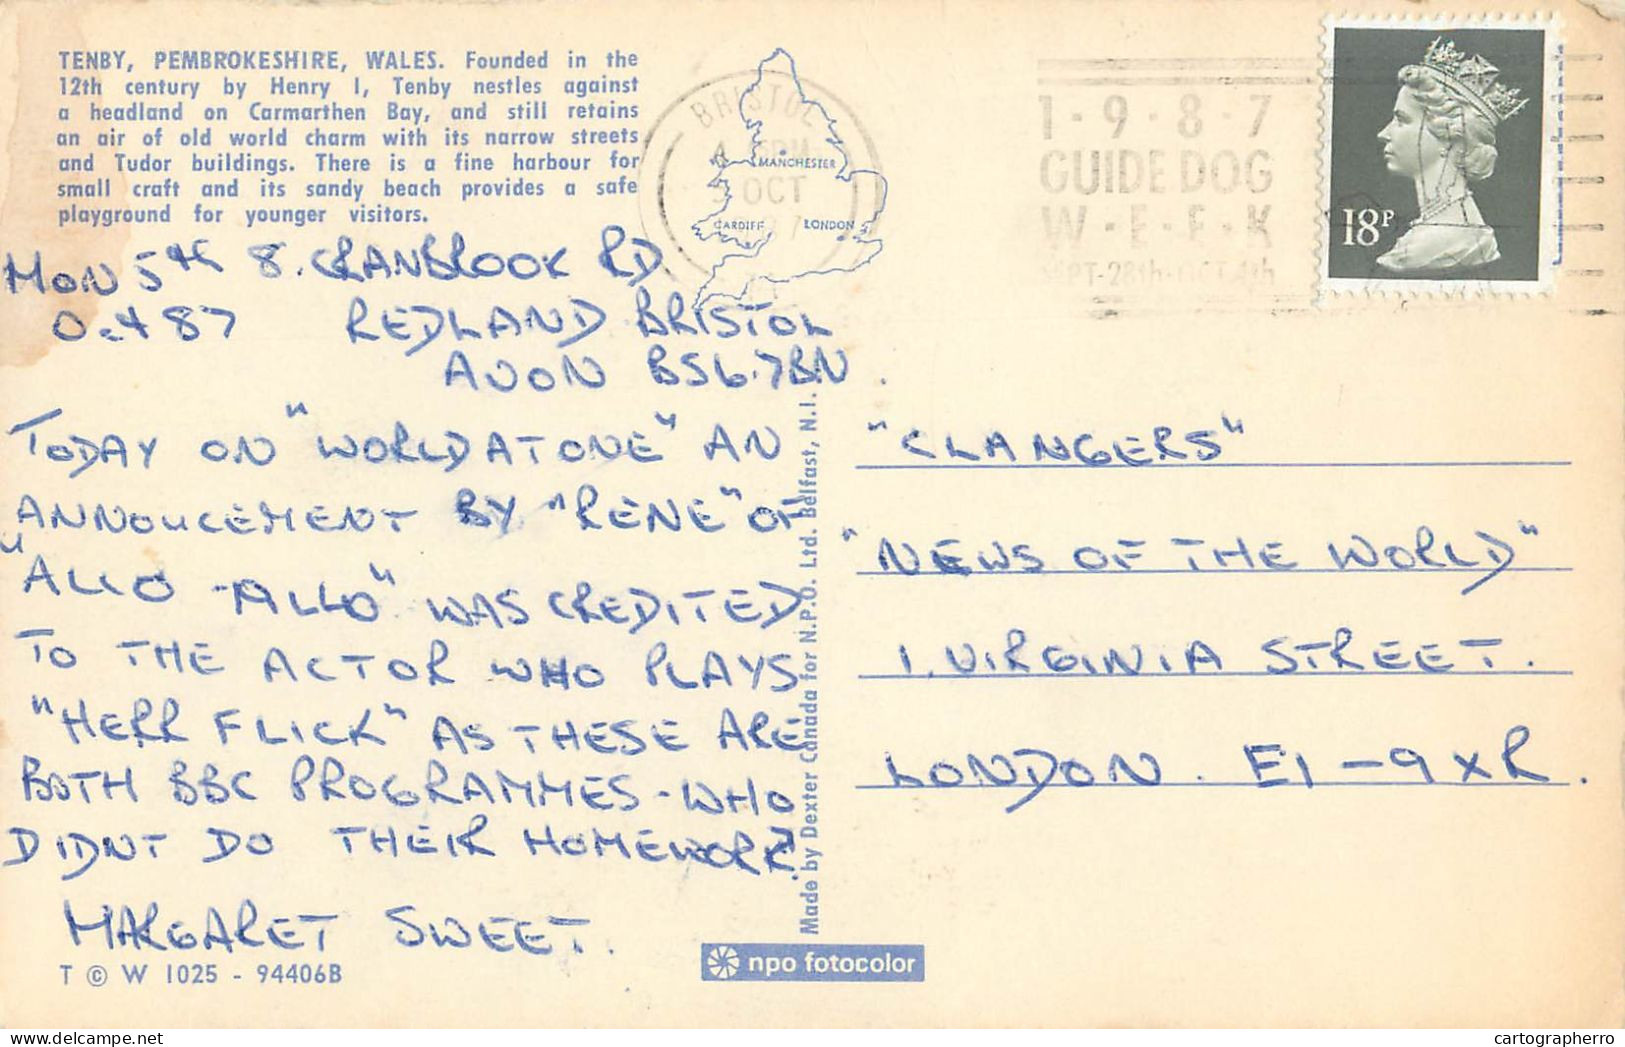 TENBY, PEMBROKESHIRE, WALES. Founded in the
12th century by Henry I, Tenby nestles against
a headland on Carmarthen Bay, and still retains
an air of old world charm with its narrow streets
and Tudor buildings. There is a fine harbour for
small craft and its sandy beach provides a safe
playground for younger visitors.
BRISTOL
OCT
MANCHESTER
CARDIFF
LONDON
1·9·8·7
GUIDE DOG
W·E·E·K
SEPT-28th-OCT 4th
18P
MON 5th 8. CRANBROOK RD
Oct 87 REDLAND BRISTOL
AVON BS6.7BN.
TODAY ON "WORLD AT ONE" AN
ANNOUCEMENT BY "RENE" OF
"ALLO-ALLO" WAS CREDITED
TO THE ACTOR WHO PLAYS
"HERR FLICK" AS THESE ARE
BOTH BBC PROGRAMMES-WHO
DIDNT DO THEIR HOMEWORK?
MARGARET SWEET.
"CLANGERS"
"NEWS OF THE WORLD"
1. VIRGINIA STREET.
LONDON. E1-9XR.
Made by Dexter Canada for N.P.O. Ltd. Belfast, N.I.
T © W 1025 - 94406B
npo fotocolor
cartographerro